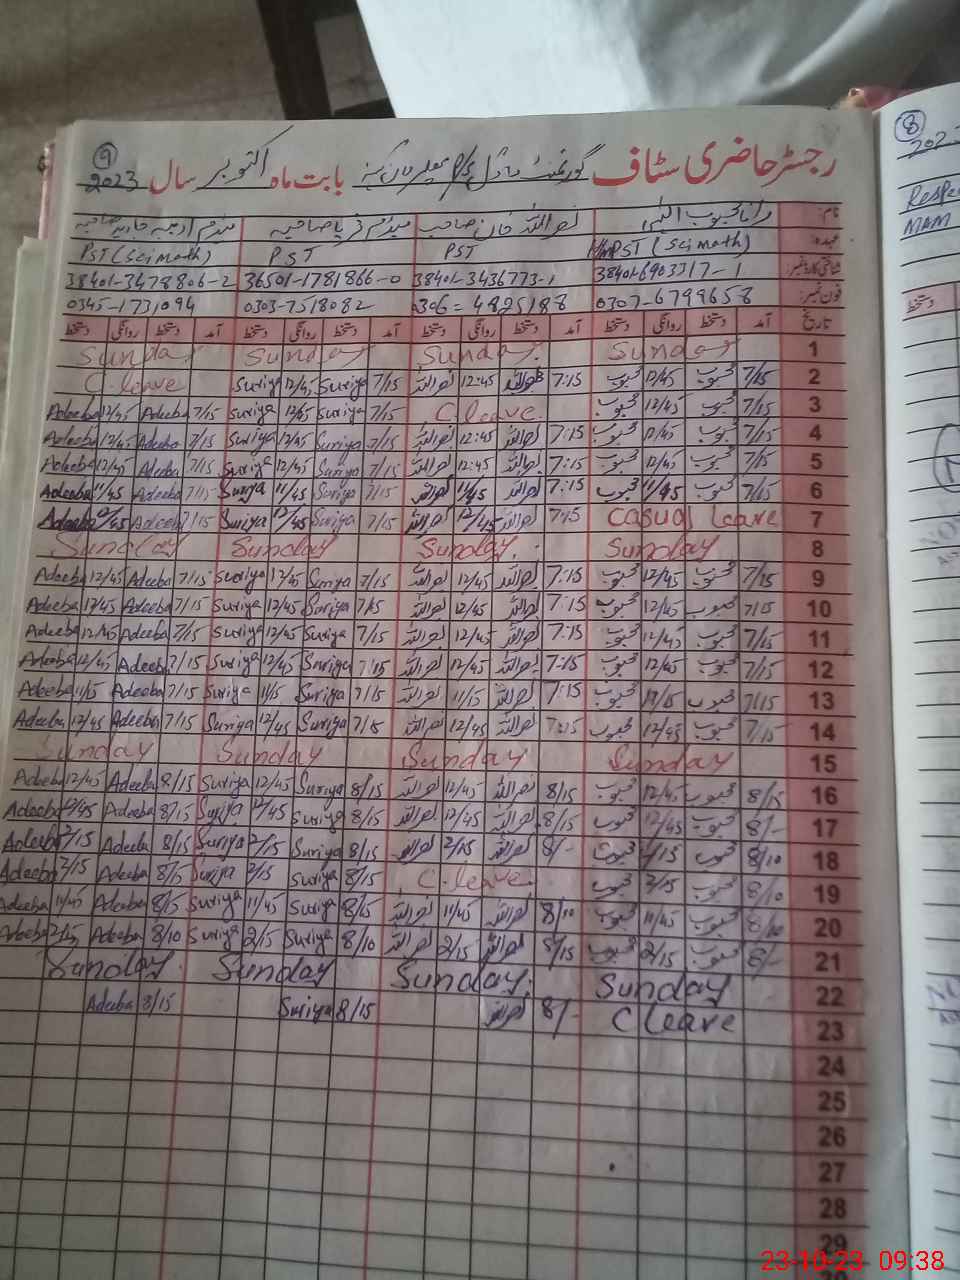 رجسٹر حاضری سٹاف گورنمنٹ ماڈل P/S بابت ماہ اکتوبر سال 2023
9
نام: رانا محبوب نصراللہ خان صاحب میڈم ثریا صاحبہ میڈم ادیبہ
عہدہ: PST (Sci Math) PST PST PST (Sci Math)
شناختی کارڈ نمبر: 38401-6903317-1 38401-3436773-1 36501-1781866-0 38401-3478806-2
فون نمبر: 0307-6799658 0306=4825188 0303-7518082 0345-1731094
تاریخ آمد دستخط روانگی دستخط آمد دستخط روانگی دستخط آمد دستخط روانگی دستخط آمد دستخط روانگی دستخط
1 Sunday Sunday Sunday Sunday
2 7/15 محبوب 12/45 محبوب 7:15 نصراللہ 12:45 نصراللہ 7/15 Suriya 12/45 Suriya C.leave
3 7/15 محبوب 12/45 محبوب C.leave 7/15 Suriya 12/45 Suriya 7/15 Adeeba 12/45 Adeeba
4 7/15 محبوب 12/45 محبوب 7:15 نصراللہ 12:45 نصراللہ 7/15 Suriya 12/45 Suriya 7/15 Adeeba 12/45 Adeeba
5 7/15 محبوب 12/45 محبوب 7:15 نصراللہ 12:45 نصراللہ 7/15 Suriya 12/45 Suriya 7/15 Adeeba 12/45 Adeeba
6 7/15 محبوب 11/45 محبوب 7:15 نصراللہ 11/45 نصراللہ 7/15 Suriya 11/45 Suriya 7/15 Adeeba 11/45 Adeeba
7 Casual leave 7:15 نصراللہ 12/45 نصراللہ 7/15 Suriya 12/45 Suriya 7/15 Adeeba 12/45 Adeeba
8 Sunday Sunday Sunday Sunday
9 7/15 محبوب 12/45 محبوب 7:15 نصراللہ 12/45 نصراللہ 7/15 Suriya 12/45 Suriya 7/15 Adeeba 12/45 Adeeba
10 7/15 محبوب 12/45 محبوب 7:15 نصراللہ 12/45 نصراللہ 7/15 Suriya 12/45 Suriya 7/15 Adeeba 12/45 Adeeba
11 7/15 محبوب 12/45 محبوب 7:15 نصراللہ 12/45 نصراللہ 7/15 Suriya 12/45 Suriya 7/15 Adeeba 12/45 Adeeba
12 7/15 محبوب 12/45 محبوب 7:15 نصراللہ 12/45 نصراللہ 7/15 Suriya 12/45 Suriya 7/15 Adeeba 12/45 Adeeba
13 7/15 محبوب 11/15 محبوب 7:15 نصراللہ 11/15 نصراللہ 7/15 Suriya 11/15 Suriya 7/15 Adeeba 11/15 Adeeba
14 7/15 محبوب 12/45 محبوب 7:15 نصراللہ 12/45 نصراللہ 7/15 Suriya 12/45 Suriya 7/15 Adeeba 12/45 Adeeba
15 Sunday Sunday Sunday Sunday
16 8/15 محبوب 12/45 محبوب 8/15 نصراللہ 12/45 نصراللہ 8/15 Suriya 12/45 Suriya 8/15 Adeeba 12/45 Adeeba
17 8/- محبوب 12/45 محبوب 8/15 نصراللہ 12/45 نصراللہ 8/15 Suriya 12/45 Suriya 8/15 Adeeba 12/45 Adeeba
18 8/10 محبوب 2/15 محبوب 8/- نصراللہ 2/15 نصراللہ 8/15 Suriya 2/15 Suriya 8/15 Adeeba 2/15 Adeeba
19 8/10 محبوب 2/15 محبوب C.leave 8/15 Suriya 2/15 Suriya 8/15 Adeeba 2/15 Adeeba
20 8/10 محبوب 11/45 محبوب 8/10 نصراللہ 11/45 نصراللہ 8/15 Suriya 11/45 Suriya 8/15 Adeeba 11/45 Adeeba
21 8/- محبوب 2/15 محبوب 8/15 نصراللہ 2/15 نصراللہ 8/10 Suriya 2/15 Suriya 8/10 Adeeba 2/15 Adeeba
22 Sunday Sunday Sunday Sunday
23 C leave 8/- نصراللہ 8/15 Suriya 8/15 Adeeba
24
25
26
27
28
29
8
MAM
دستخط
23-10-23 09:38